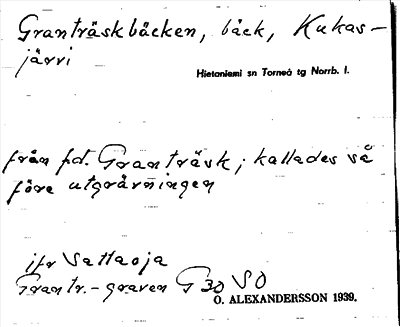 Granträskbäcken, bäck, Kukas-
järvi
Hietaniemi sn Torneå tg Norrb. l.
från fd. Granträsk; kallades så
före utgrävningen
jfr Vattaoja
Grantr.-graven G 30 SO
O. ALEXANDERSSON 1939.